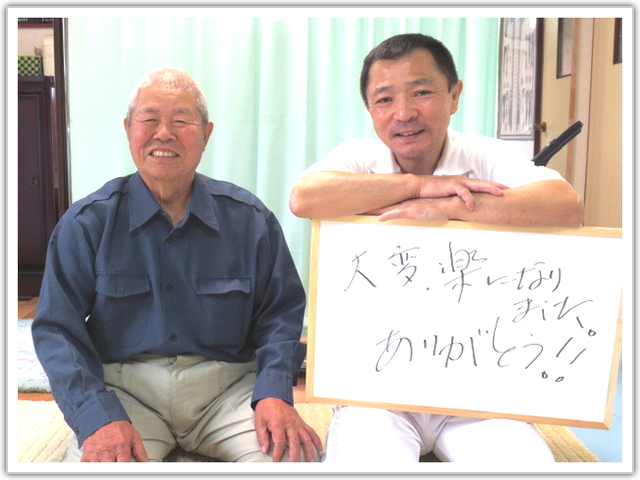 大変.楽になり
ました。
ありがとう!!